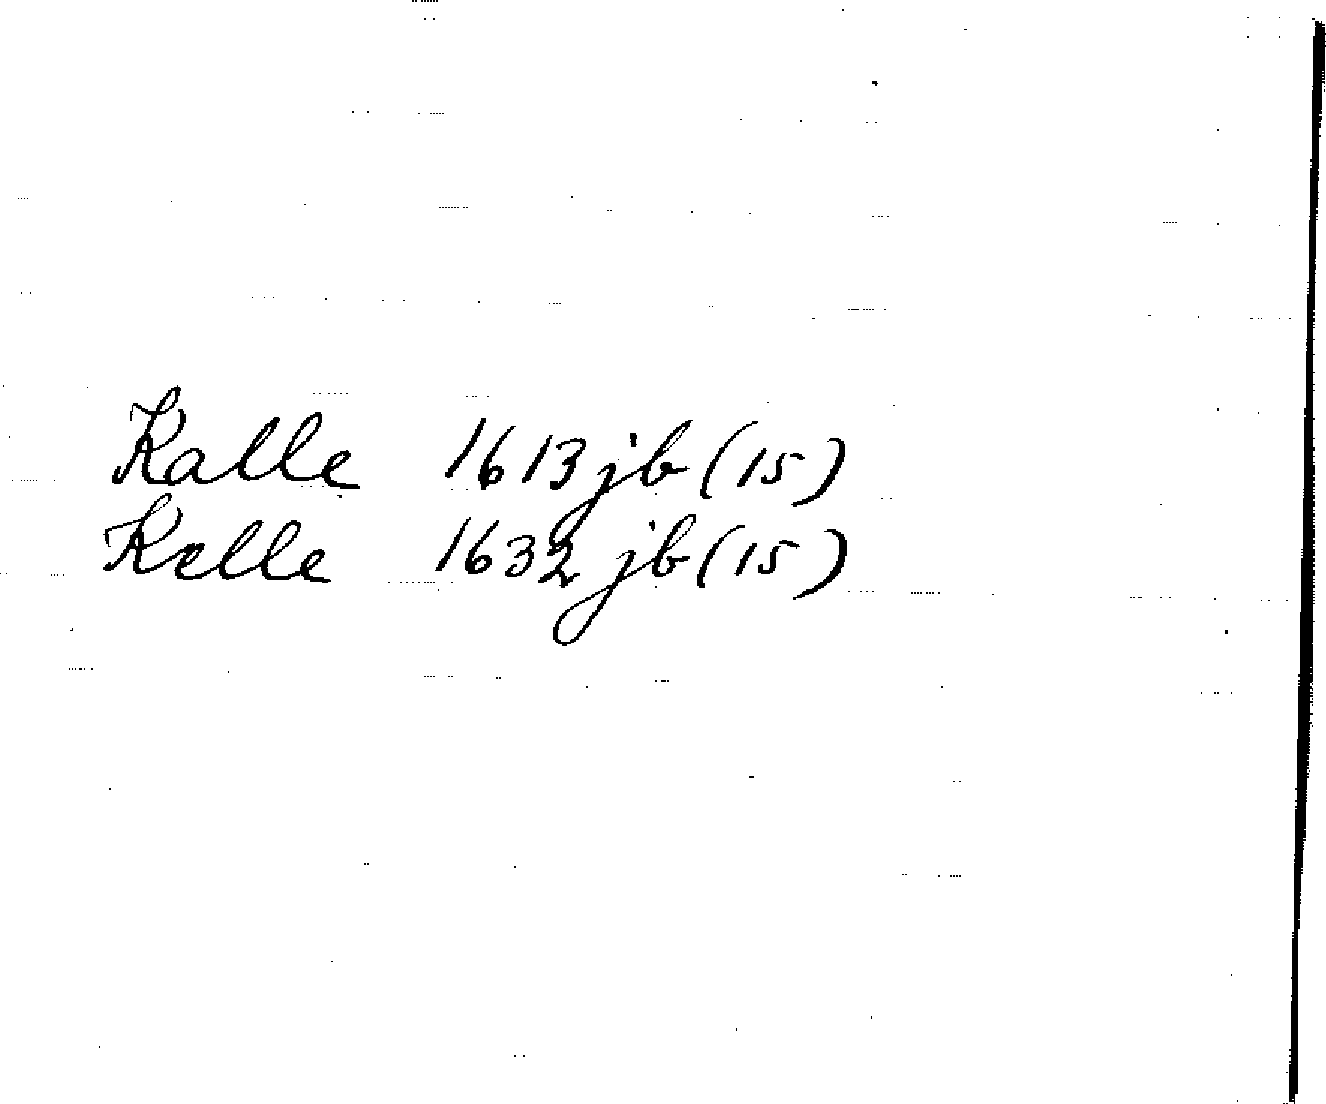 Kalle 1613 jb (15)
Kelle 1632 jb (15)